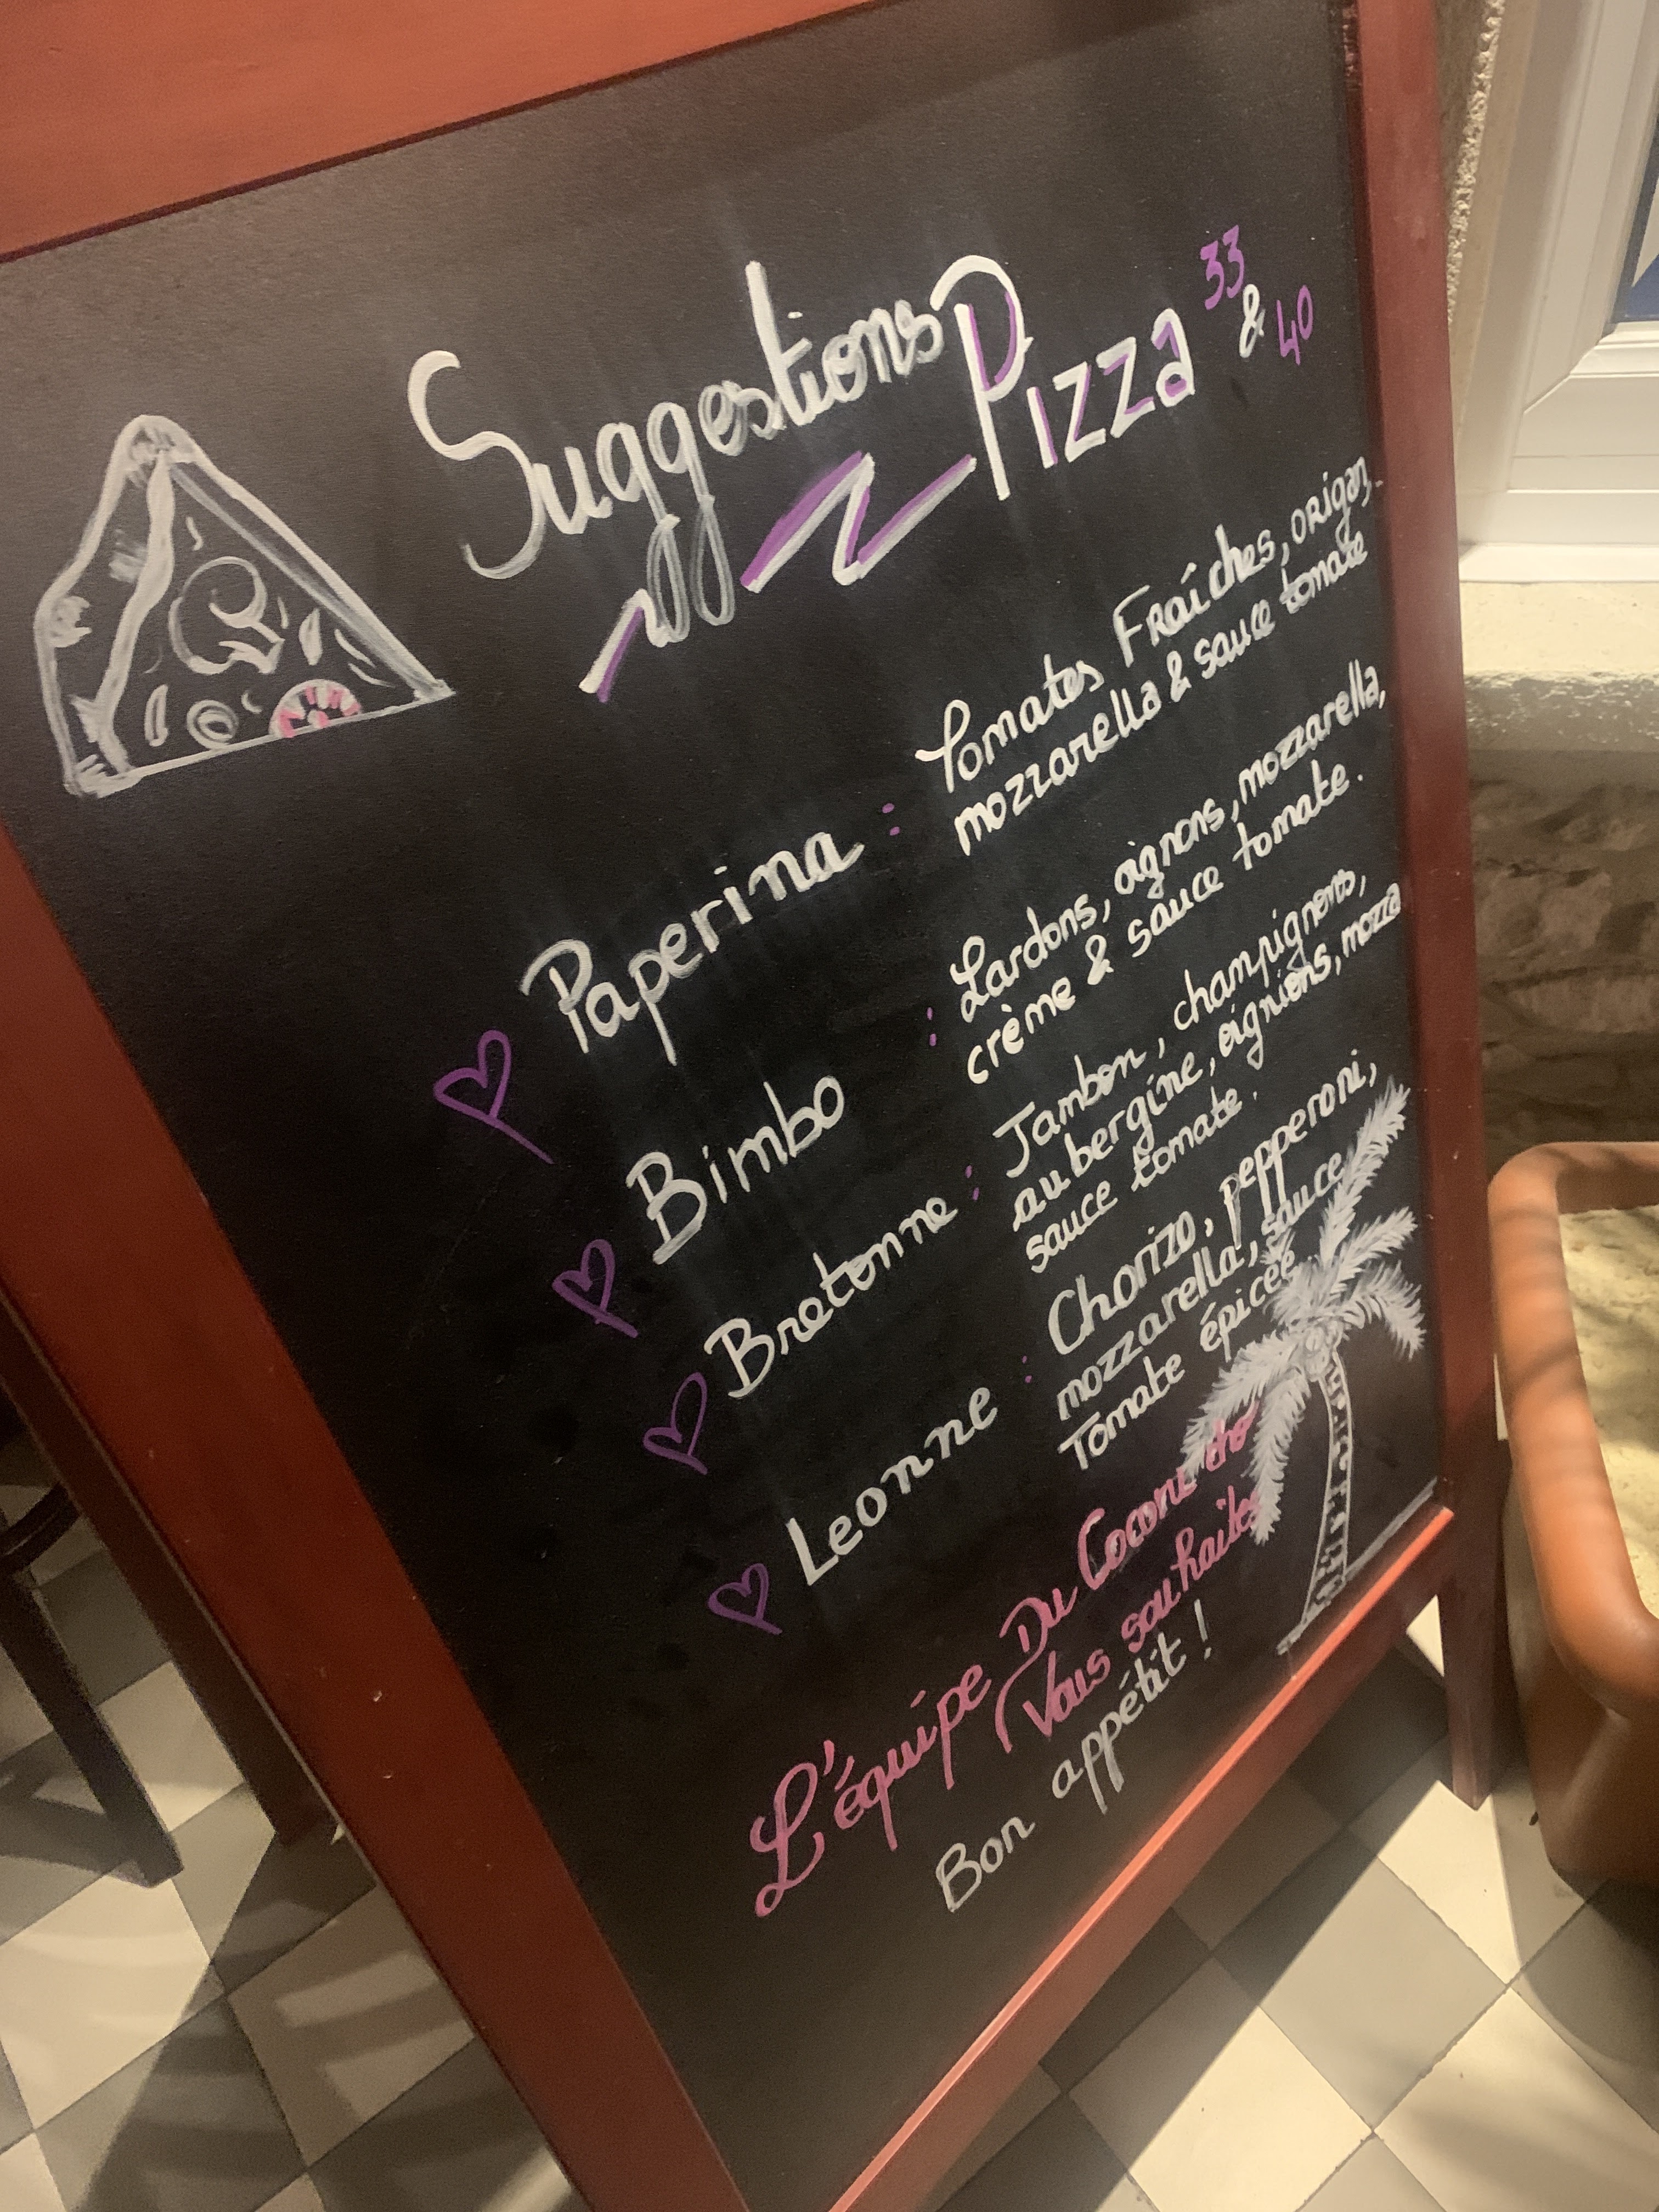 Suggestions Pizza 33 & 40
Paperina : Tomates Fraîches, origan,
mozzarella & sauce tomate
Bimbo : Lardons, oignons, mozzarella,
crème & sauce tomate.
Bretonne : Jambon, champignons,
aubergine, oignions, mozza
sauce tomate.
Leonne : Chorizo, pepperoni,
mozzarella, sauce
Tomate épicée
L'équipe Du
Vous souhaites
Bon appétit !